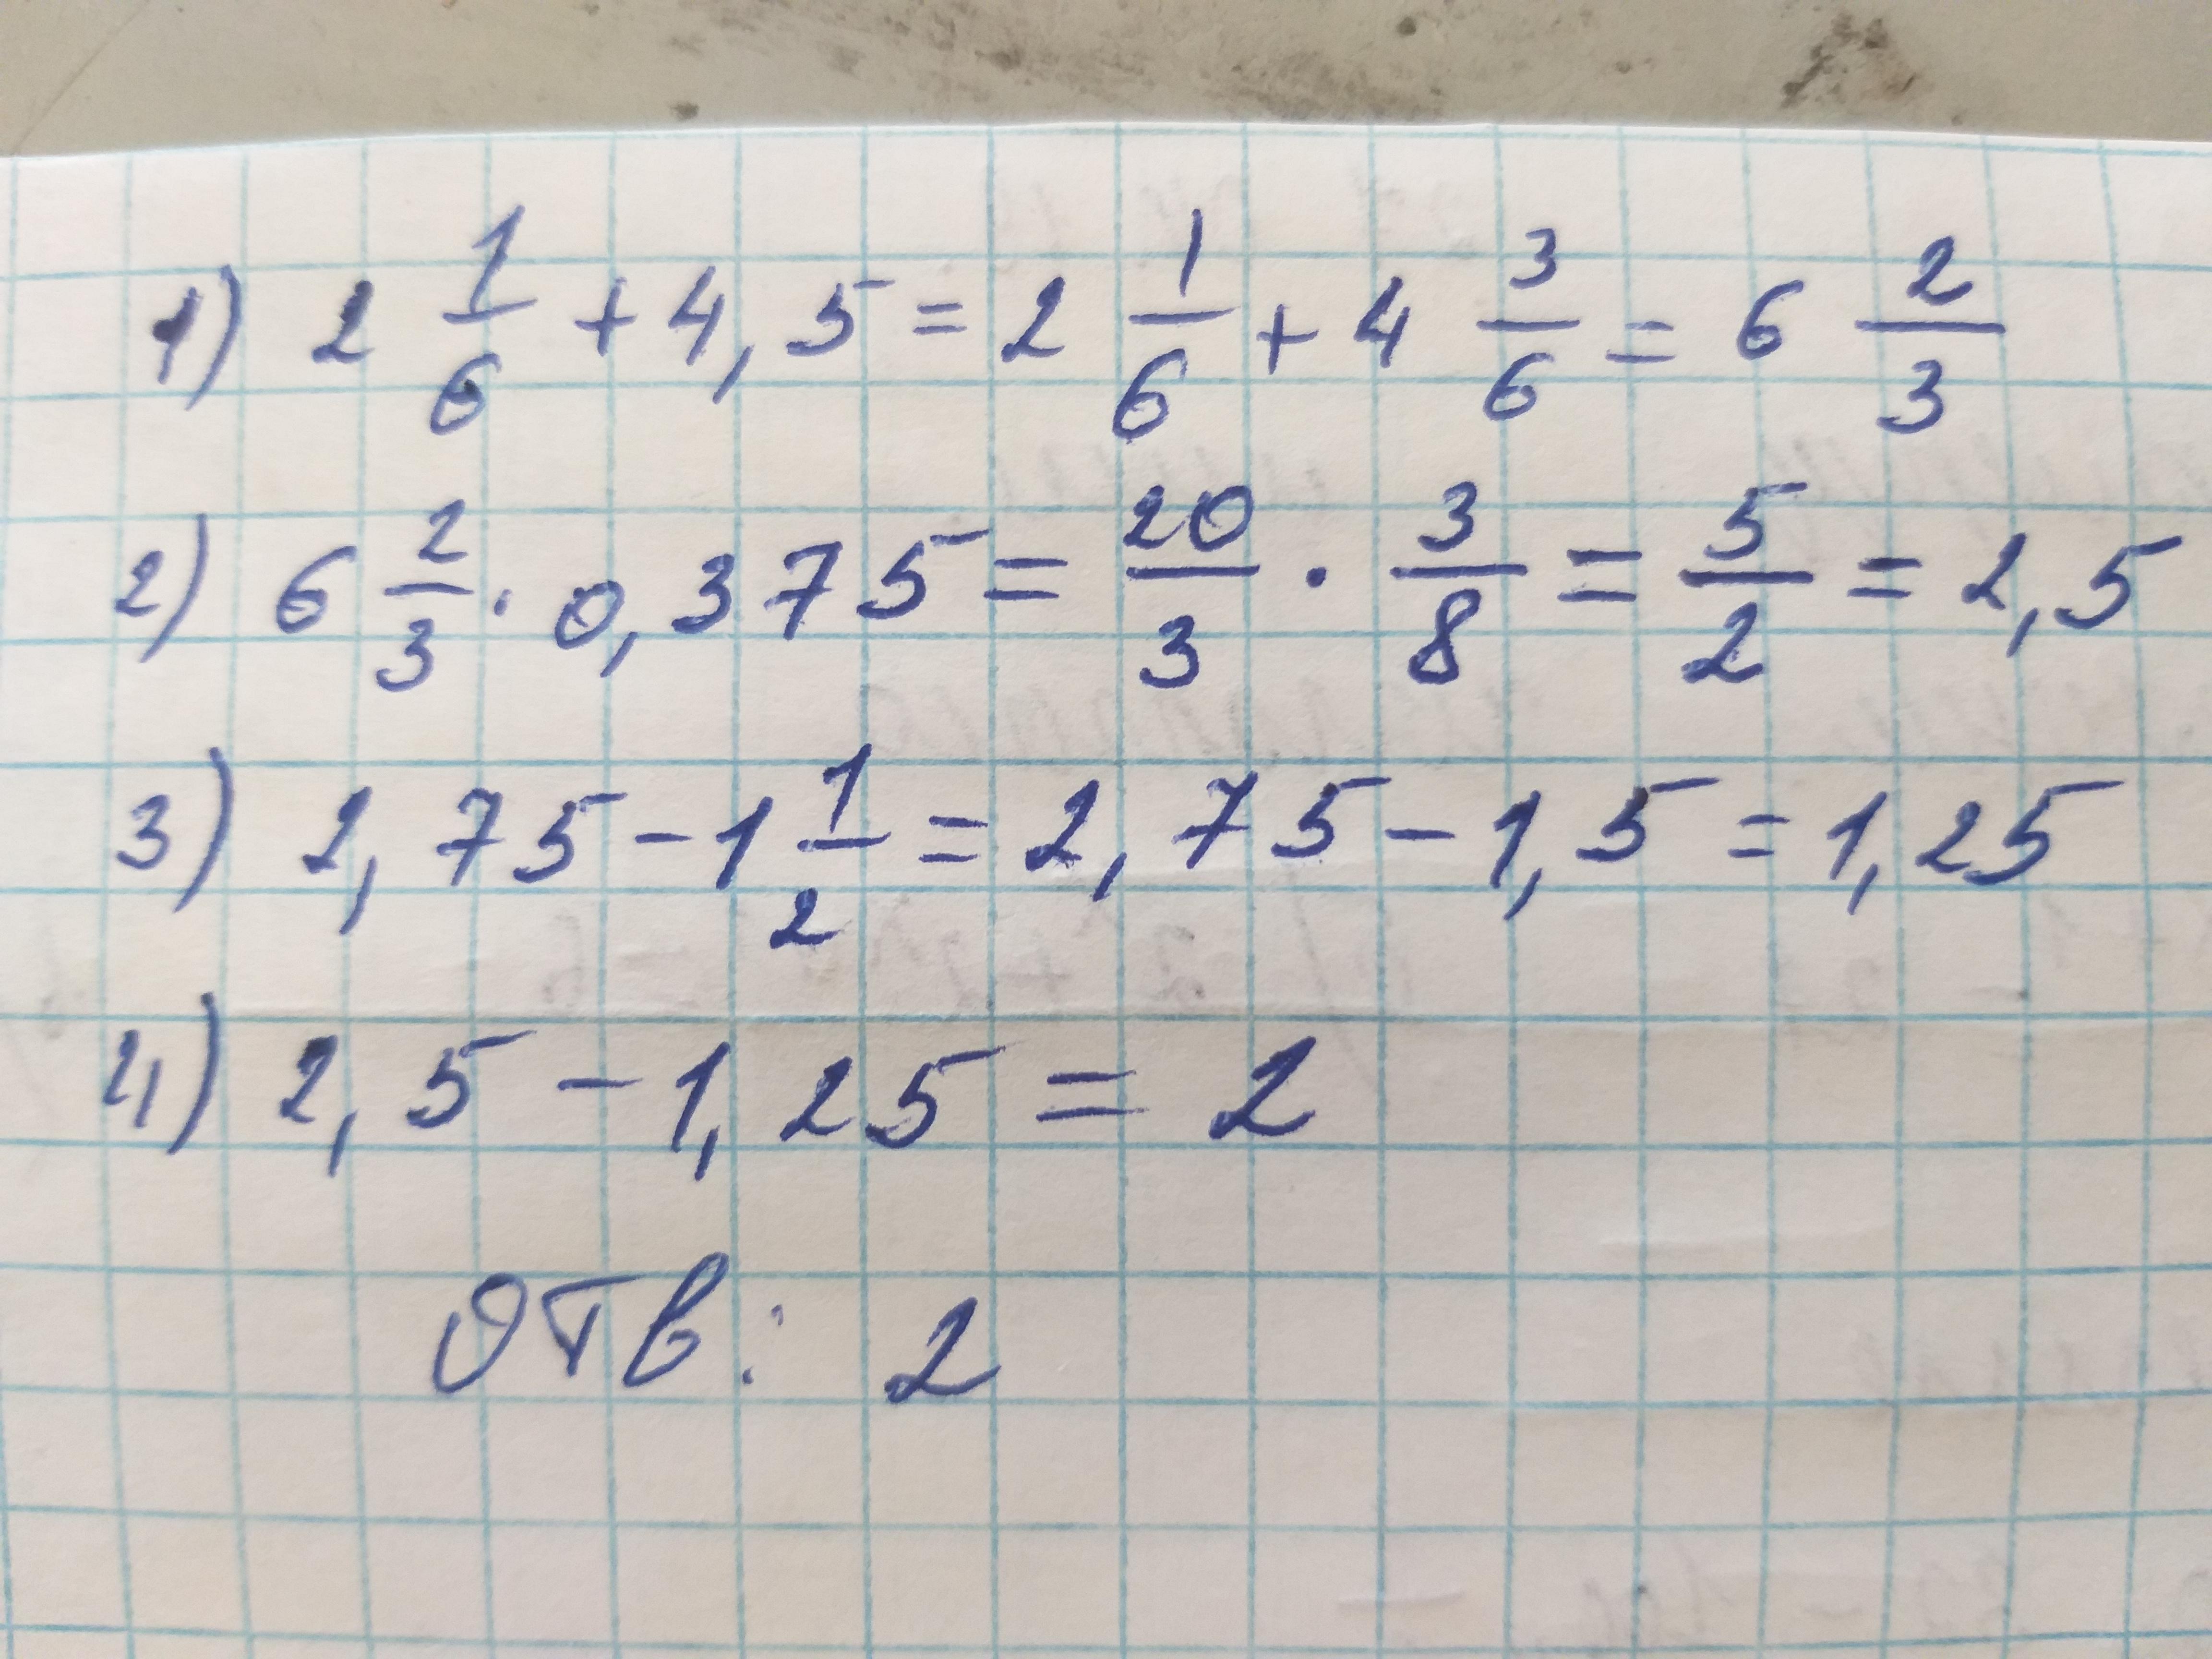 1) 2 1/6 + 4,5 = 2 1/6 + 4 3/6 = 6 2/3
2) 6 2/3 · 0,375 = 20/3 · 3/8 = 5/2 = 2,5
3) 2,75 - 1 1/2 = 2,75 - 1,5 = 1,25
4) 2,5 - 1,25 = 2
Отв: 2